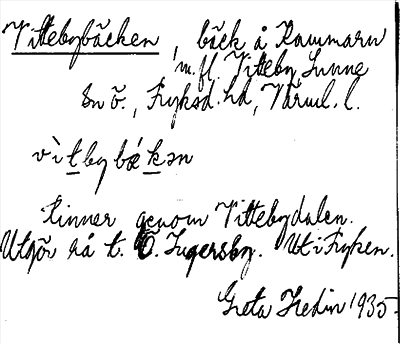 Vittebybäcken, bäck å Rammarn
m.fl. Vitteby, Sunne
sn ö., Fryksd. hd, Värml. l.
vìtbybækən
rinner genom Vittebydalen.
Utgör rå t. Ö. Ingersby. Ut i Fryken.
Greta Hedin 1935.